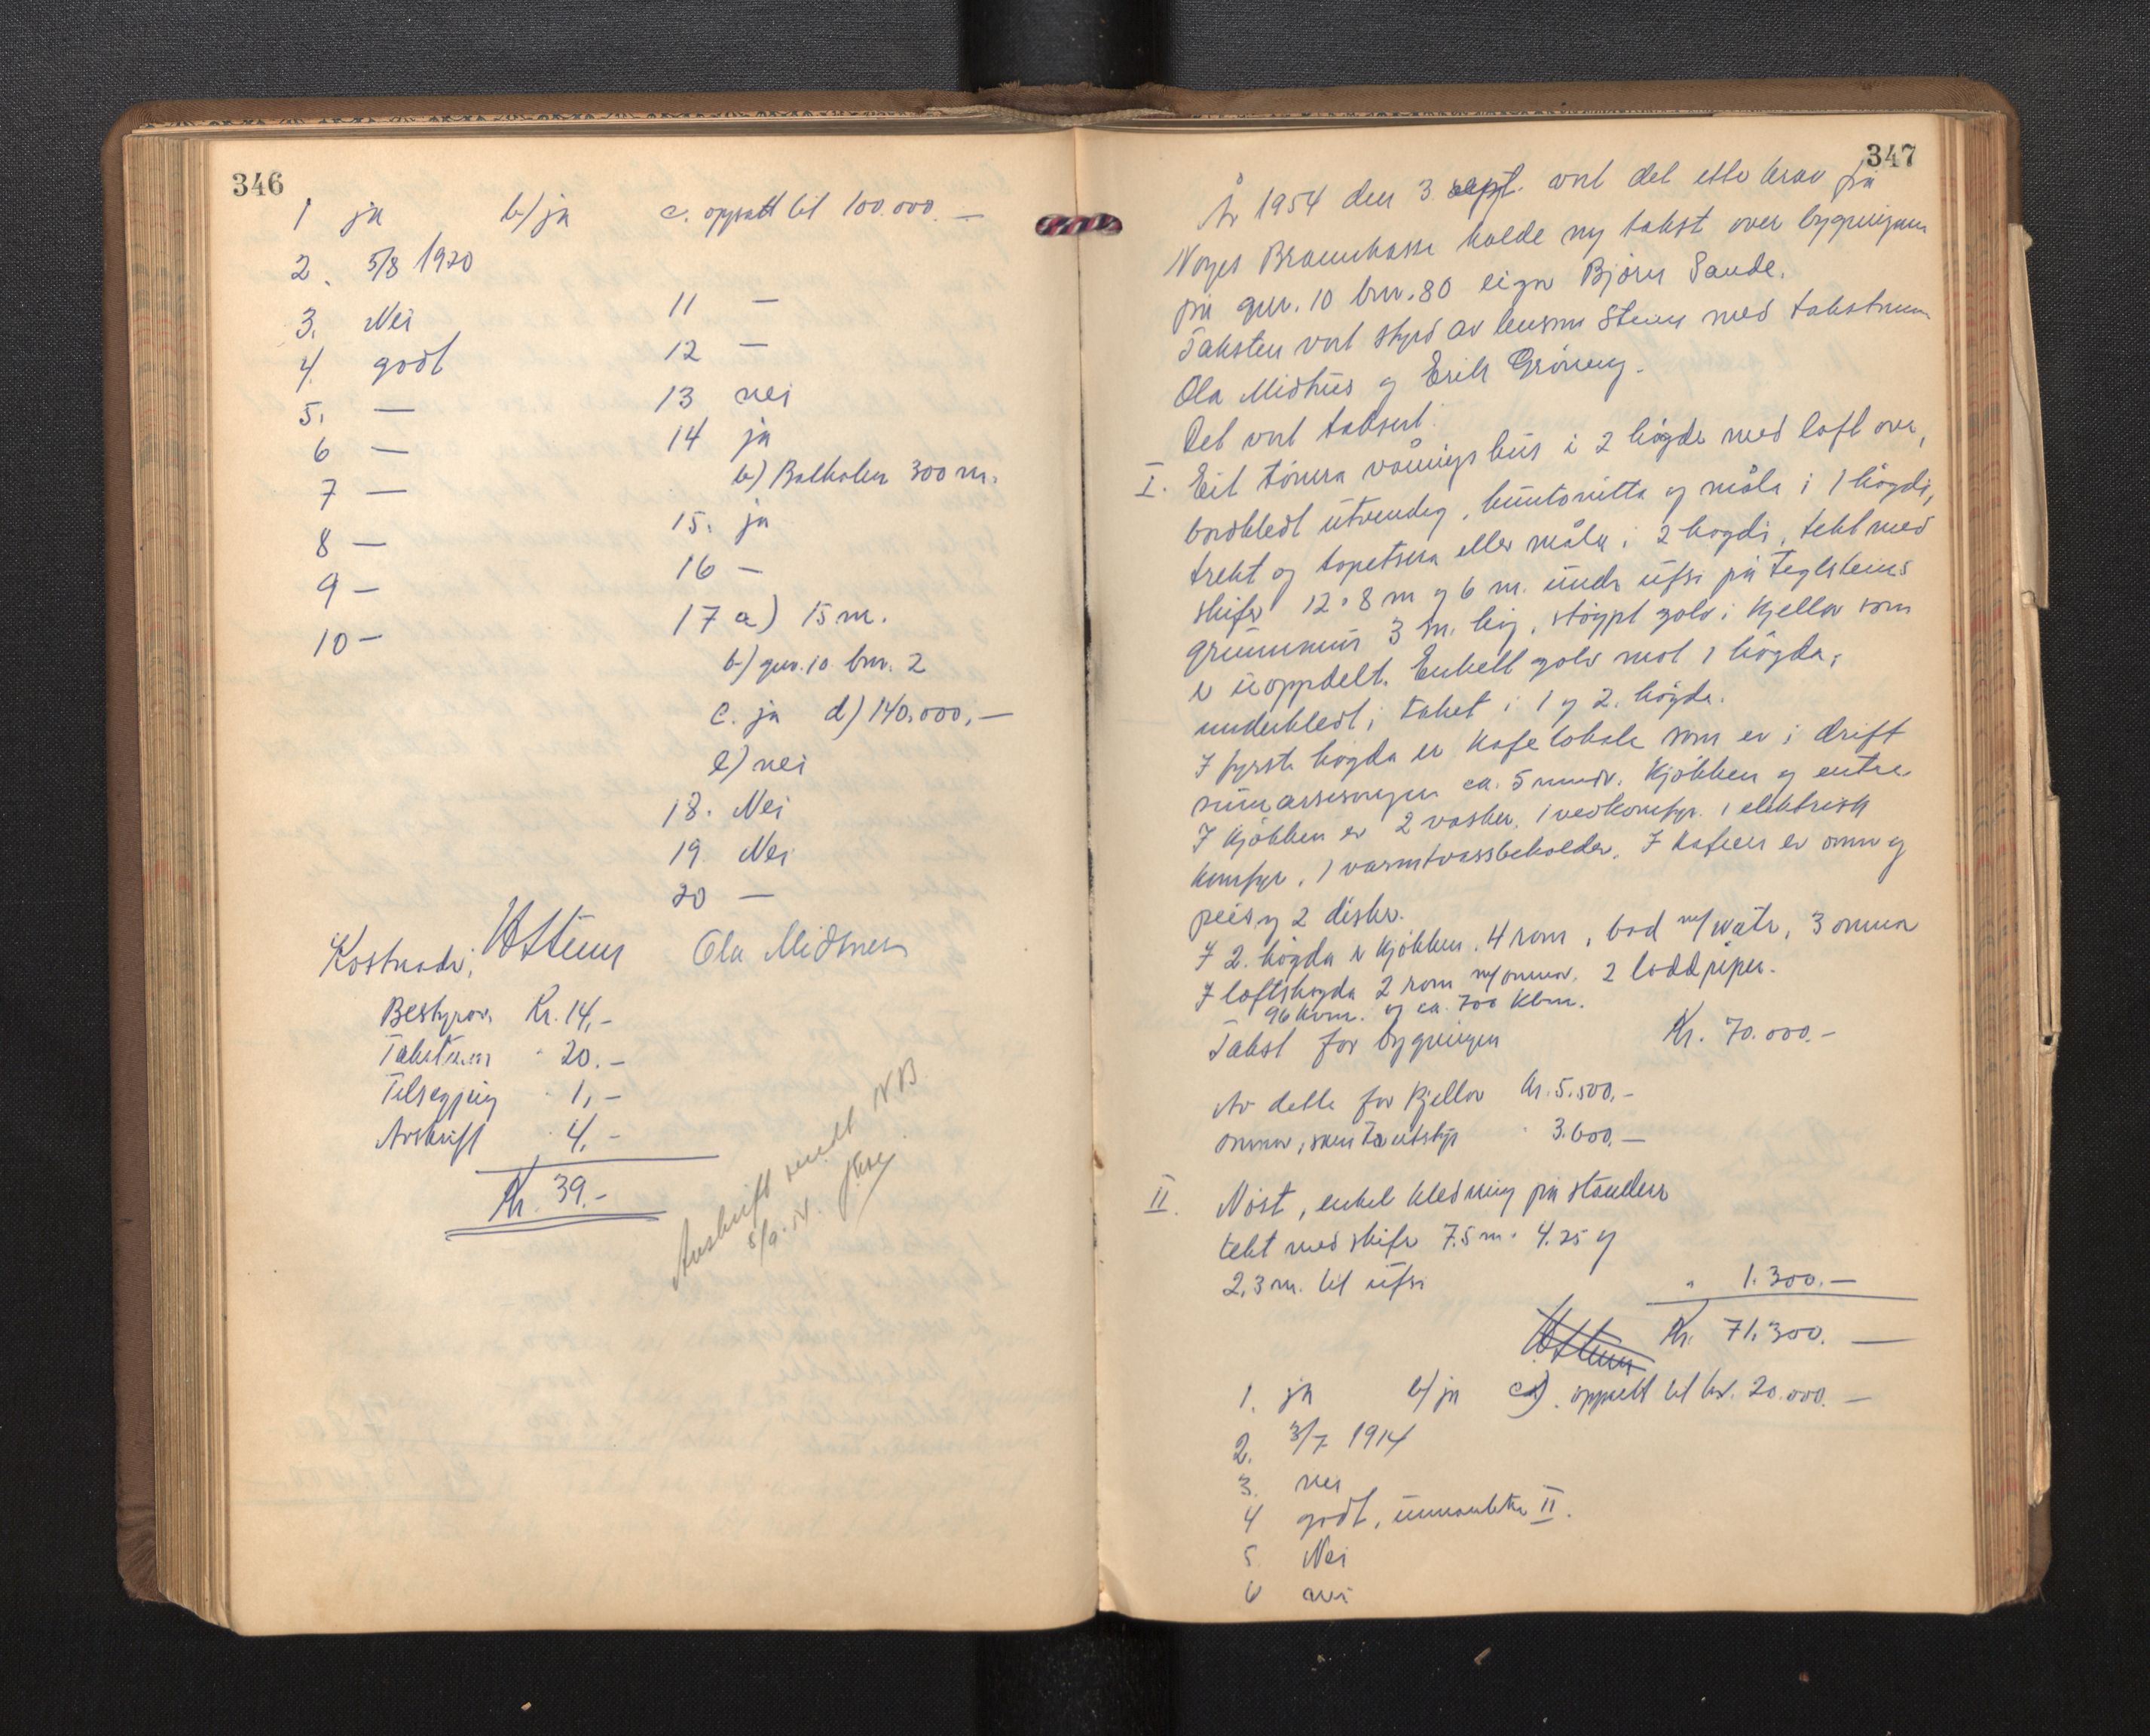 346
1 ja b/ ja c. oppsatt til 100.000.—
2. 5/8 1920
3. Nei
4. godt
5. —
6 —
7 —
8 —
9 —
10 —
11 —
12 —
13 nei
14 ja
b) Balholm 300 m.
15. ja
16 —
17 a) 15 m.
b) gnr. 10 bnr. 2
c. ja d) 140.000,—
e) nei
18. Nei
19. Nei
20 —
Kostnad:
Ola Midtnes
Bestyrar Kr. 14,-
Takstmenn " 20.-
Tilsegjing " 1,-
Avskrift " 4,-
Kr. 39.-
Avskrift sendt NB
347
År 1954 den 3. sept. vart det etter krav frå
Noregs Brannkasse halde ny takst over bygningane
på gnr. 10 bnr. 80 eigar Björn Sande.
Taksten vart styrd av lensm. Steen med takstmenn
Ola Midtnes og Erik Gröneng.
Det vart taksert:
I. Eit tömra våningshus i 2 högder med loft over,
bordkledt utvendig, huntonitta og måla i 1 högdi,
trekt og tapetsera eller måla i 2 högdi, tekt med
skifer 12 · 8 m og 6 m. under ufsi på teglsteins
grunnmur 3 m. hög, stöypt golv i kjellar som
er uoppdelt. Enkelt golv mot 1 högda,
underkledt i taket i 1 og 2. högda.
I fyrste högda er kafelokale som er i drift
sumarsesongen ca. 5 mndr. Kjökken og entre
I kjökken er 2 vasker, 1 vedkomfyr. 1 elektrisk
komfyr, 1 varmtvassbeholder. I kafeen er omn og
peis og 2 disker.
I 2. högda er kjökken, 4 rom, bad m/ watr, 3 omnar
I loftshögda 2 rom m/ omnar. 2 loddpiper.
96 kvm. og ca. 700 kbm.
Takst for bygningen Kr. 70.000.-
Av dette for kjellar kr. 5.500,-
omnar, sanitærutstyr " 3.600.—
II. Nöst, enkel kledning på standere
tekt med skifer 7.5 m · 4.25 og
2,3 m. til ufsi " 1.300.—
Kr. 71.300.—
1. ja b/ ja c). oppsett til kr. 20.000.—
2. 3/7 1914
3. nei
4 godt, unnateke II.
5 Nei
6 nei